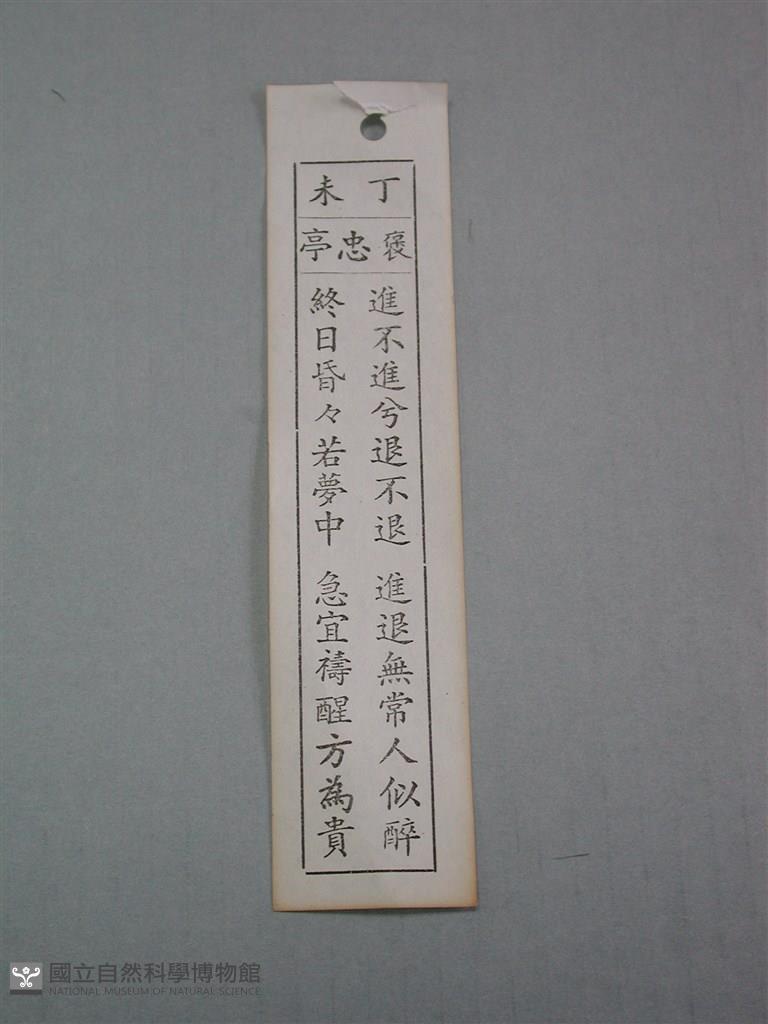 丁未
褒忠亭
進不進兮退不退 進退無常人似醉
終日昏々若夢中 急宜禱醒方為貴
國立自然科學博物館
NATIONAL MUSEUM OF NATURAL SCIENCE